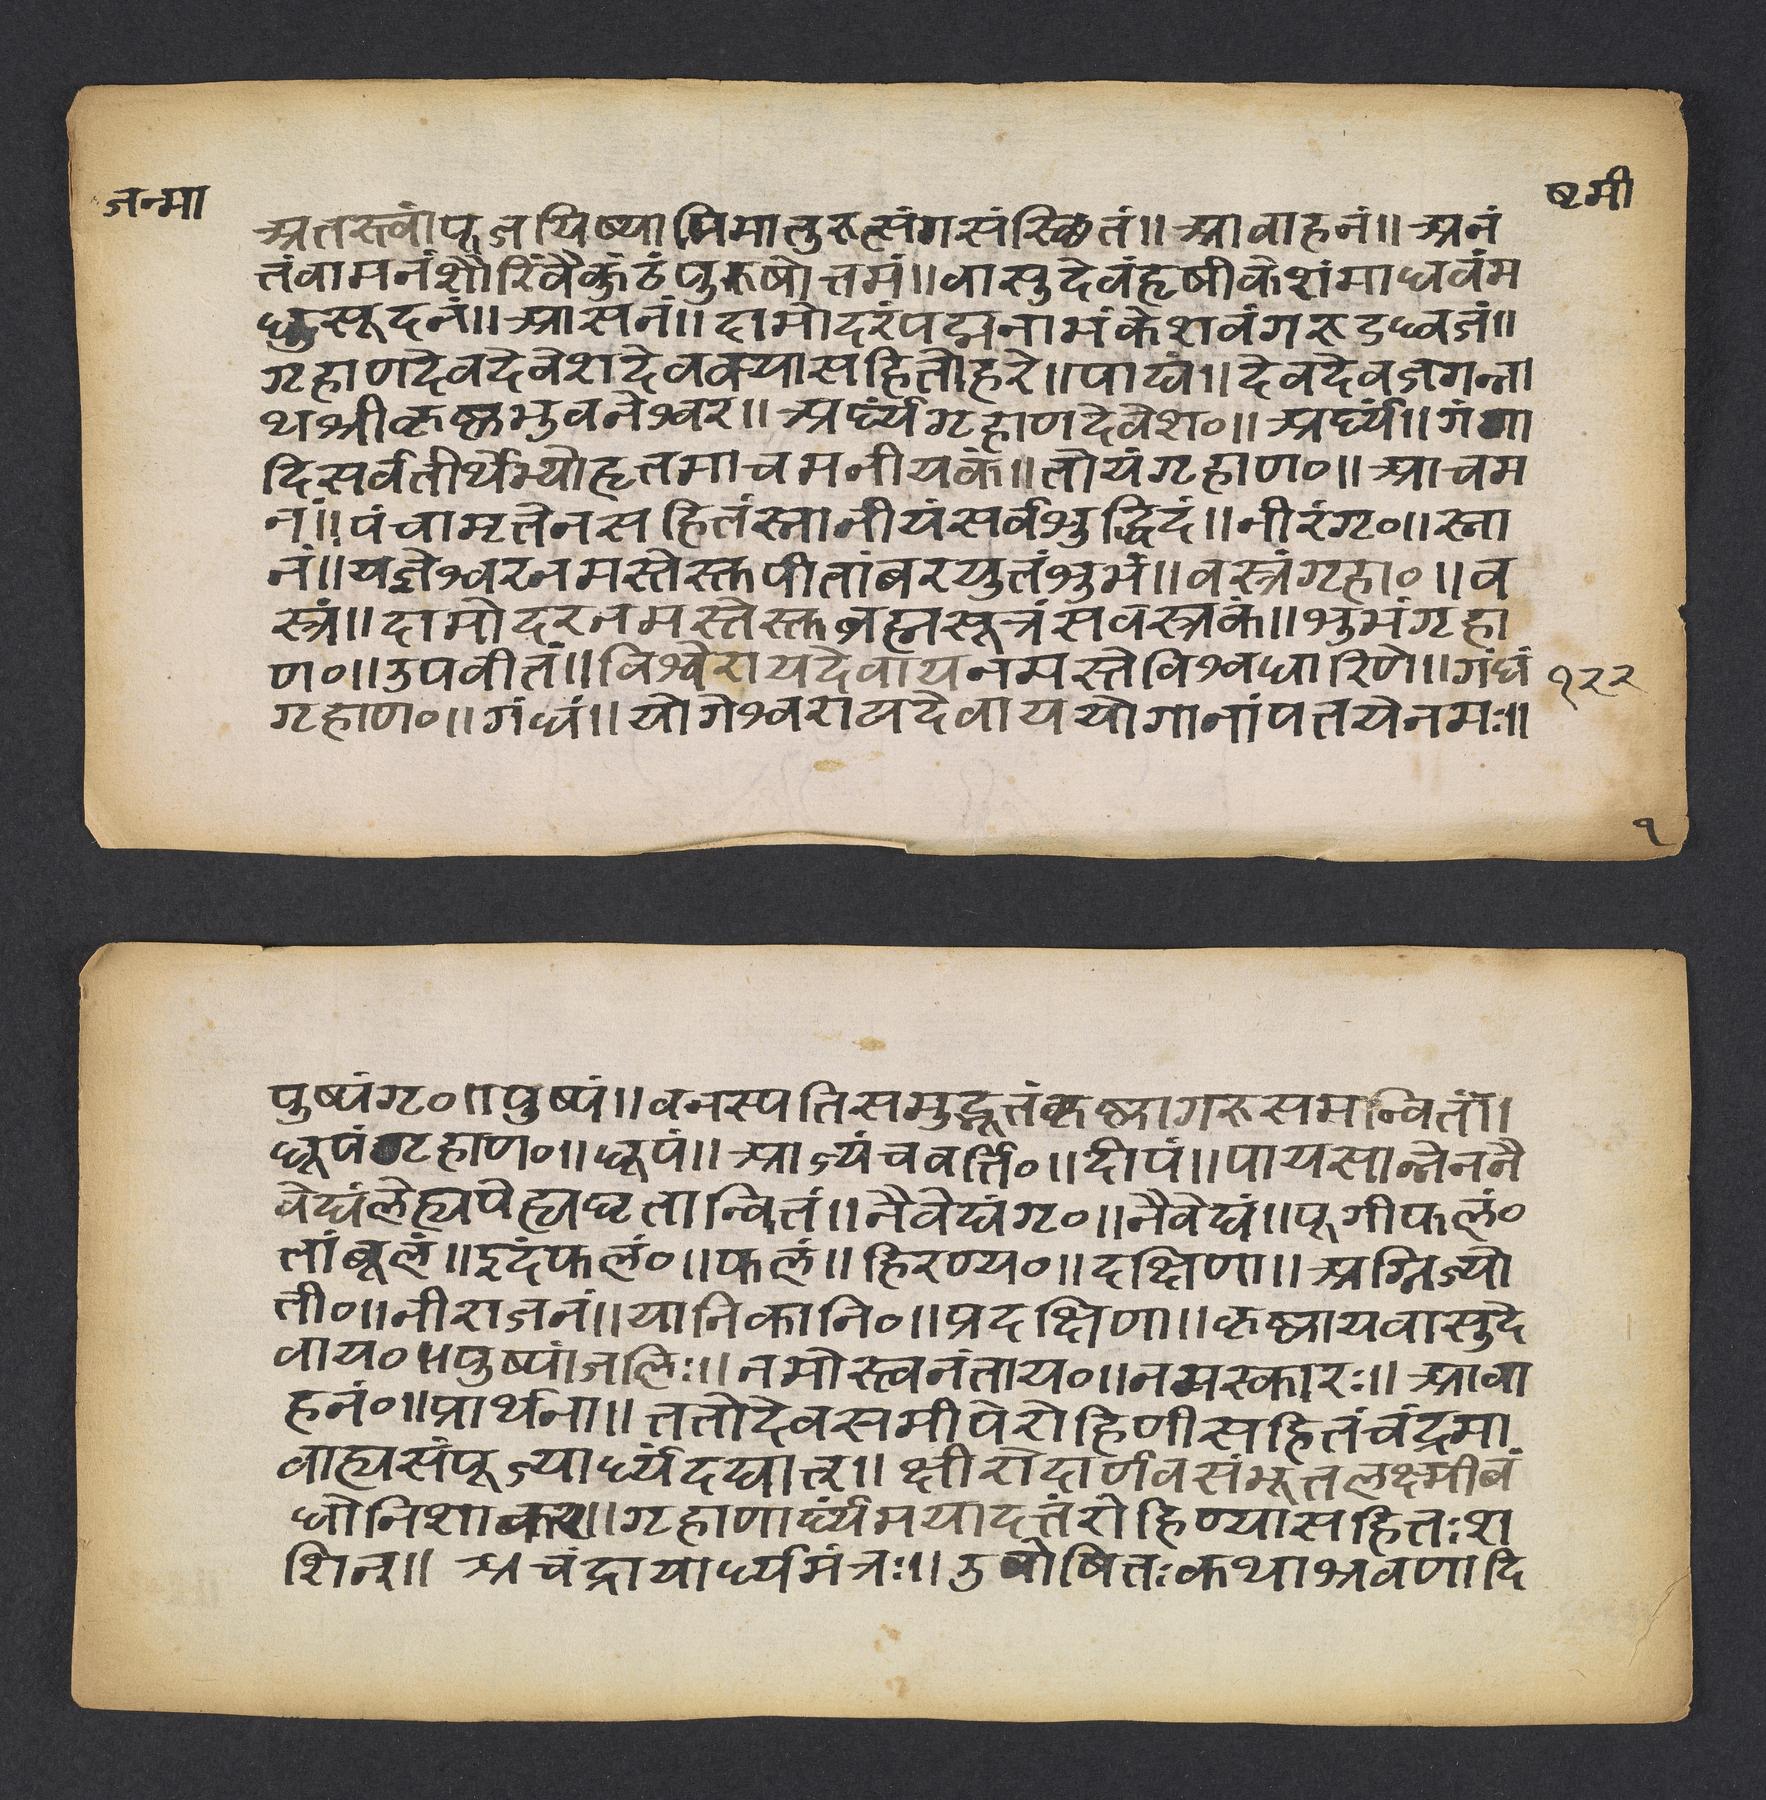 जन्मा
ष्टमी
अतस्त्वां पूजयिष्यामि मातुरुत्संगसंस्थितं॥ आवाहनं॥ अनं
तंवामनंशौरिंवैकुंठंपुरुषोत्तमं॥ वासुदेवंहृषीकेशंमाधवंम
धुसूदनं॥ आसनं॥ दामोदरंपद्मनाभंकेशवंगरुडध्वजं॥
गृहाणदेवदेवेशदेवक्यासहितोहरे॥ पाद्यं॥ देवदेवजगन्ना
थश्रीकृष्णभुवनेश्वर॥ अर्घ्यंगृहाणदेवेश०॥ अर्घ्यं॥ गंगा
दिसर्वतीर्थेभ्योहृतमाचमनीयकं॥ तोयंगृहाण०॥ आचम
नं॥ पंचामृतेनसहितंस्नानीयंसर्वशुद्धिदं॥ नीरंगृ०॥ स्ना
नं॥ यज्ञेश्वरनमस्तेस्तुपीतांबरयुतंशुभं॥ वस्त्रंगृहा०॥ व
स्त्रं॥ दामोदरनमस्तेस्तुब्रह्मसूत्रंसवस्त्रकं॥ शुभंगृहा
ण०॥ उपवीतं॥ विश्वेरायदेवायनमस्तेविश्वधारिणे॥ गंधं
१२२
गृहाण०॥ गंधं॥ योगेश्वरायदेवाययोगानांपतयेनमः॥
१
पुष्पंगृ०॥ पुष्पं॥ वनस्पतिसमुद्भूतंकृष्णागरुसमन्वितं॥
धूपंगृहाण०॥ धूपं॥ आज्यंचवर्त्ति०॥ दीपं॥ पायसान्नेननै
वेद्यंलेह्यपेह्यघृतान्वितं॥ नैवेद्यंगृ०॥ नैवेद्यं॥ पूगीफलं०
तांबूलं॥ इदंफलं०॥ फलं॥ हिरण्य०॥ दक्षिणा॥ अग्निज्यो
ती०॥ नीराजनं॥ यानिकानि०॥ प्रदक्षिणा॥ कृष्णायवासुदे
वाय०॥ पुष्पांजलिः॥ नमोस्त्वनंताय०॥ नमस्कारः॥ आवा
हनं०॥ प्रार्थना॥ ततोदेवसमीपेरोहिणीसहितंचंद्रमा
वाह्यसंपूज्यार्घ्यंदद्यात्॥ क्षीरोदार्णवसंभूतलक्ष्मीबं
धोनिशाकर॥ गृहाणार्घ्यंमयादत्तंरोहिण्यासहितःश
शिन्॥ अचंद्रायार्घ्यमंत्रः॥ उपोषितःकथाश्रवणादि